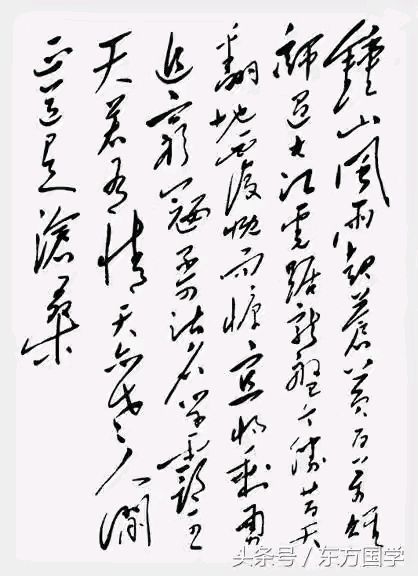 鍾山風雨起蒼黃百萬雄
師過大江虎踞龍盤今勝昔天
翻地覆慨而慷宜將剩勇
追窮寇不可沽名學霸王
天若有情天亦老人間
正道是滄桑
头条号／东方国学